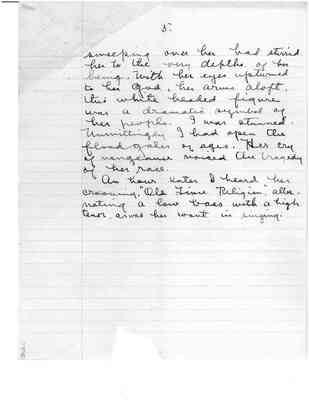 5.
sweeping over her had stirred
her to the very depths of her
being. With her eyes upturned
to her God, her arms aloft,
this white headed figure
was a dramatic symbol of
her people. I was stunned.
Unwittingly I had open the
flood gates of ages. Her cry
of vengeance voiced the tragedy
of her race.
An hour later I heard her
crooning, "Ole Time 'Religion" alter-
nating a low bass with a high
tenor as was her wont in singing.